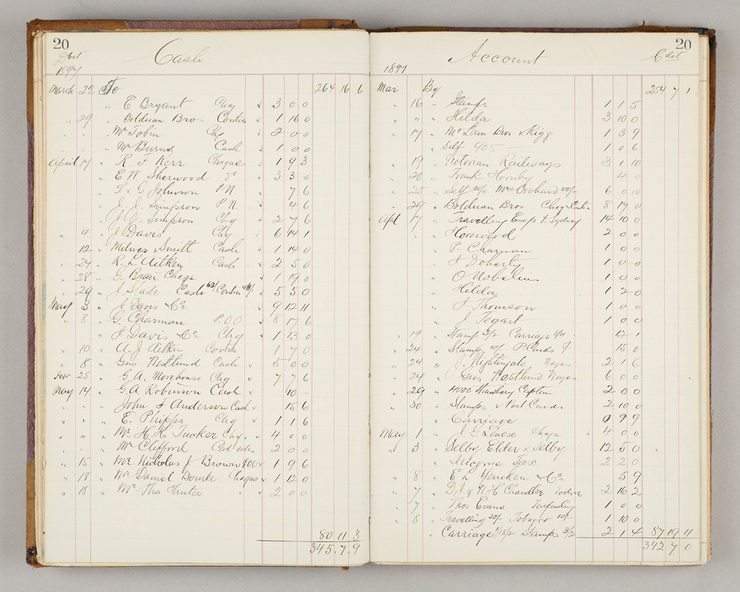 20
Cash
1897
March 22 To 264 16 6
" E Bryant Chq 3 0 0
" 29 " Bolduan Bro Contra 1 16 0
" Mr Tobin Chq 2 0 0
" Mr Burns Cash 1 0 0
April 17 " R F Kerr Cheque 1 9 3
" E W Sherwood Do 3 3 0
" L & G Johnson P N 7 6
" J. J. Simpson P.N. 4 6
" Simpson Chq 2 7 6
" 4 " J Davis Chq 6 14 1
" 12 " Milner Smith Cash 1 10 0
" 24 " R L Aitken Cash 2 5 0
" 28 " G Bean Chqe 1 9 0
" 29 " J Slade Cash Contra 5 5 0
May 3 " J Davis & Co 9 12 11
" 8 " G Charman P.O.O 8 17 6
" J Davis & Co Chq 1 13 0
" 10 " A J Aitken Contra 1 7 0
" 8 " Geo Westlund Cash 5 0 0
" 25 " G. A. Morehouse Chq 7 7 6
May 14 " G A Robinson Cash 10 -
" " John J Anderson Cash 15 6
" " E. Phipps Chq 1 1 6
" " Mr H. H Tucker Chq 4 0 0
" Mr Clifford 2 0 0
" 15 " Mr Nicholas J Brown 1 9 6
" 18 " Mr Daniel Bourke Cheques 1 12 0
" 18 " Mr Thos Hunter " 2 0 0
80 11 3
345.7.9
20
Account
1897
Mar By 254 7 1
" 16 " Stamps 1 1 5
" " " Hilda 3 10 0
" 17 " McLean Bros & Rigg 1 3 9
" Self 905 - 1 0 6
" 19 " Victorian Railways 3 1 10
" 20 " Frank Hornby 4 0
" 25 " Self Mrs Orchard 6 0 0
" 29 " Bolduan Bros Chq Contra 8 17 0
Apl 17 " Travelling Exps to Sydney 14 10 0
" Horwood 2 0 0
" P. Charman 1 0 0
" J Doherty 1 0 0
" 1 0 0
" Hilda 1 2 0
" J Thomson 1 0 0
" J Togart 1 0 0
" 19 " Stamps 3/2 Carriage 12 1
" 24 " Stamps P. Cards 15 0
" 24 " J. Nightingale Wages 2 1 6
" 24 " Geo Westlund Wages 6 0 0
" 29 " 2 0 0
" 30 " Stamps & Post Cards 2 10 0
" Carriage 0 9 9
May 1 " Chqn 4 0 0
" 3 " Selby Elder & Selby 12 5 0
" Income Tax 2 2 0
" 8 " E L Yencken & Co 5 9
" 7 " D. J. & W H Chandler 2 16 2
" 7 " Thos Evans 1 0 0
" 8 " Travelling 20/ Tobacco 10/- 1 10 0
" Carriage Stamps 3/2 2 1 4 87 19 11
342 7 0